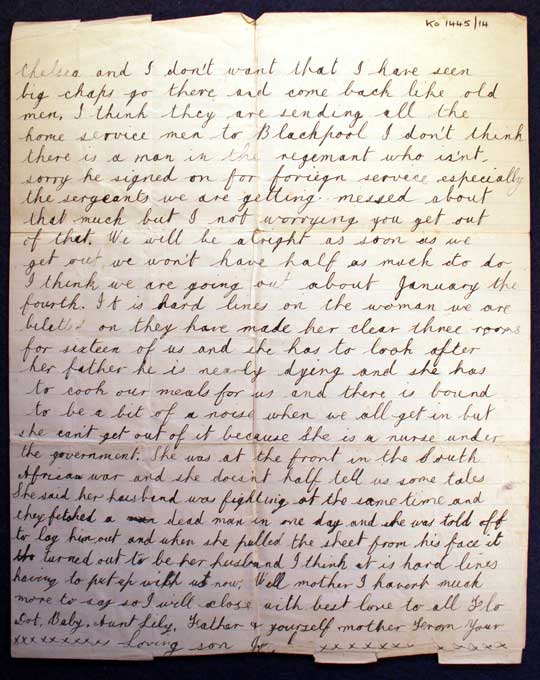 Ko 1445/14
Chelsea and I don't want that I have seen
big chaps go there and come back like old
men. I think they are sending all the
home service men to Blackpool I don't think
there is a man in the regemant who is'nt.
sorry he signed on for foriegn servece especially
the sergeants we are getting messed about
that much but I not worrying you get out
of that. We will be alright as soon as we
get out we won't have half as much to do
I think we are going out about January the
fourth. It is hard lines on the woman we are
on they have made her clear three rooms
for sixteen of us and she has to look after
her father he is nearly dying and she has
to cook our meals for us and there is bound
to be a bit of a noise when we all get in but
she can't get out of it because she is a nurse under
the government. She was at the front in the South
African war and she doesnt half tell us some tales
She said her husband was fighting at the same time and
they fetched a dead man in one day and she was told off
to lay him out and when she pulled the sheet from his face it
turned out to be her husband I think it is hard lines
having to put up with us now. Well mother I havent much
more to say so I will close with best love to all Flo
Dot, Baby, Aunt Lily, Father & yourself mother From Your
xxxxxxxxx Loving son xxxxxxx xxxxxx